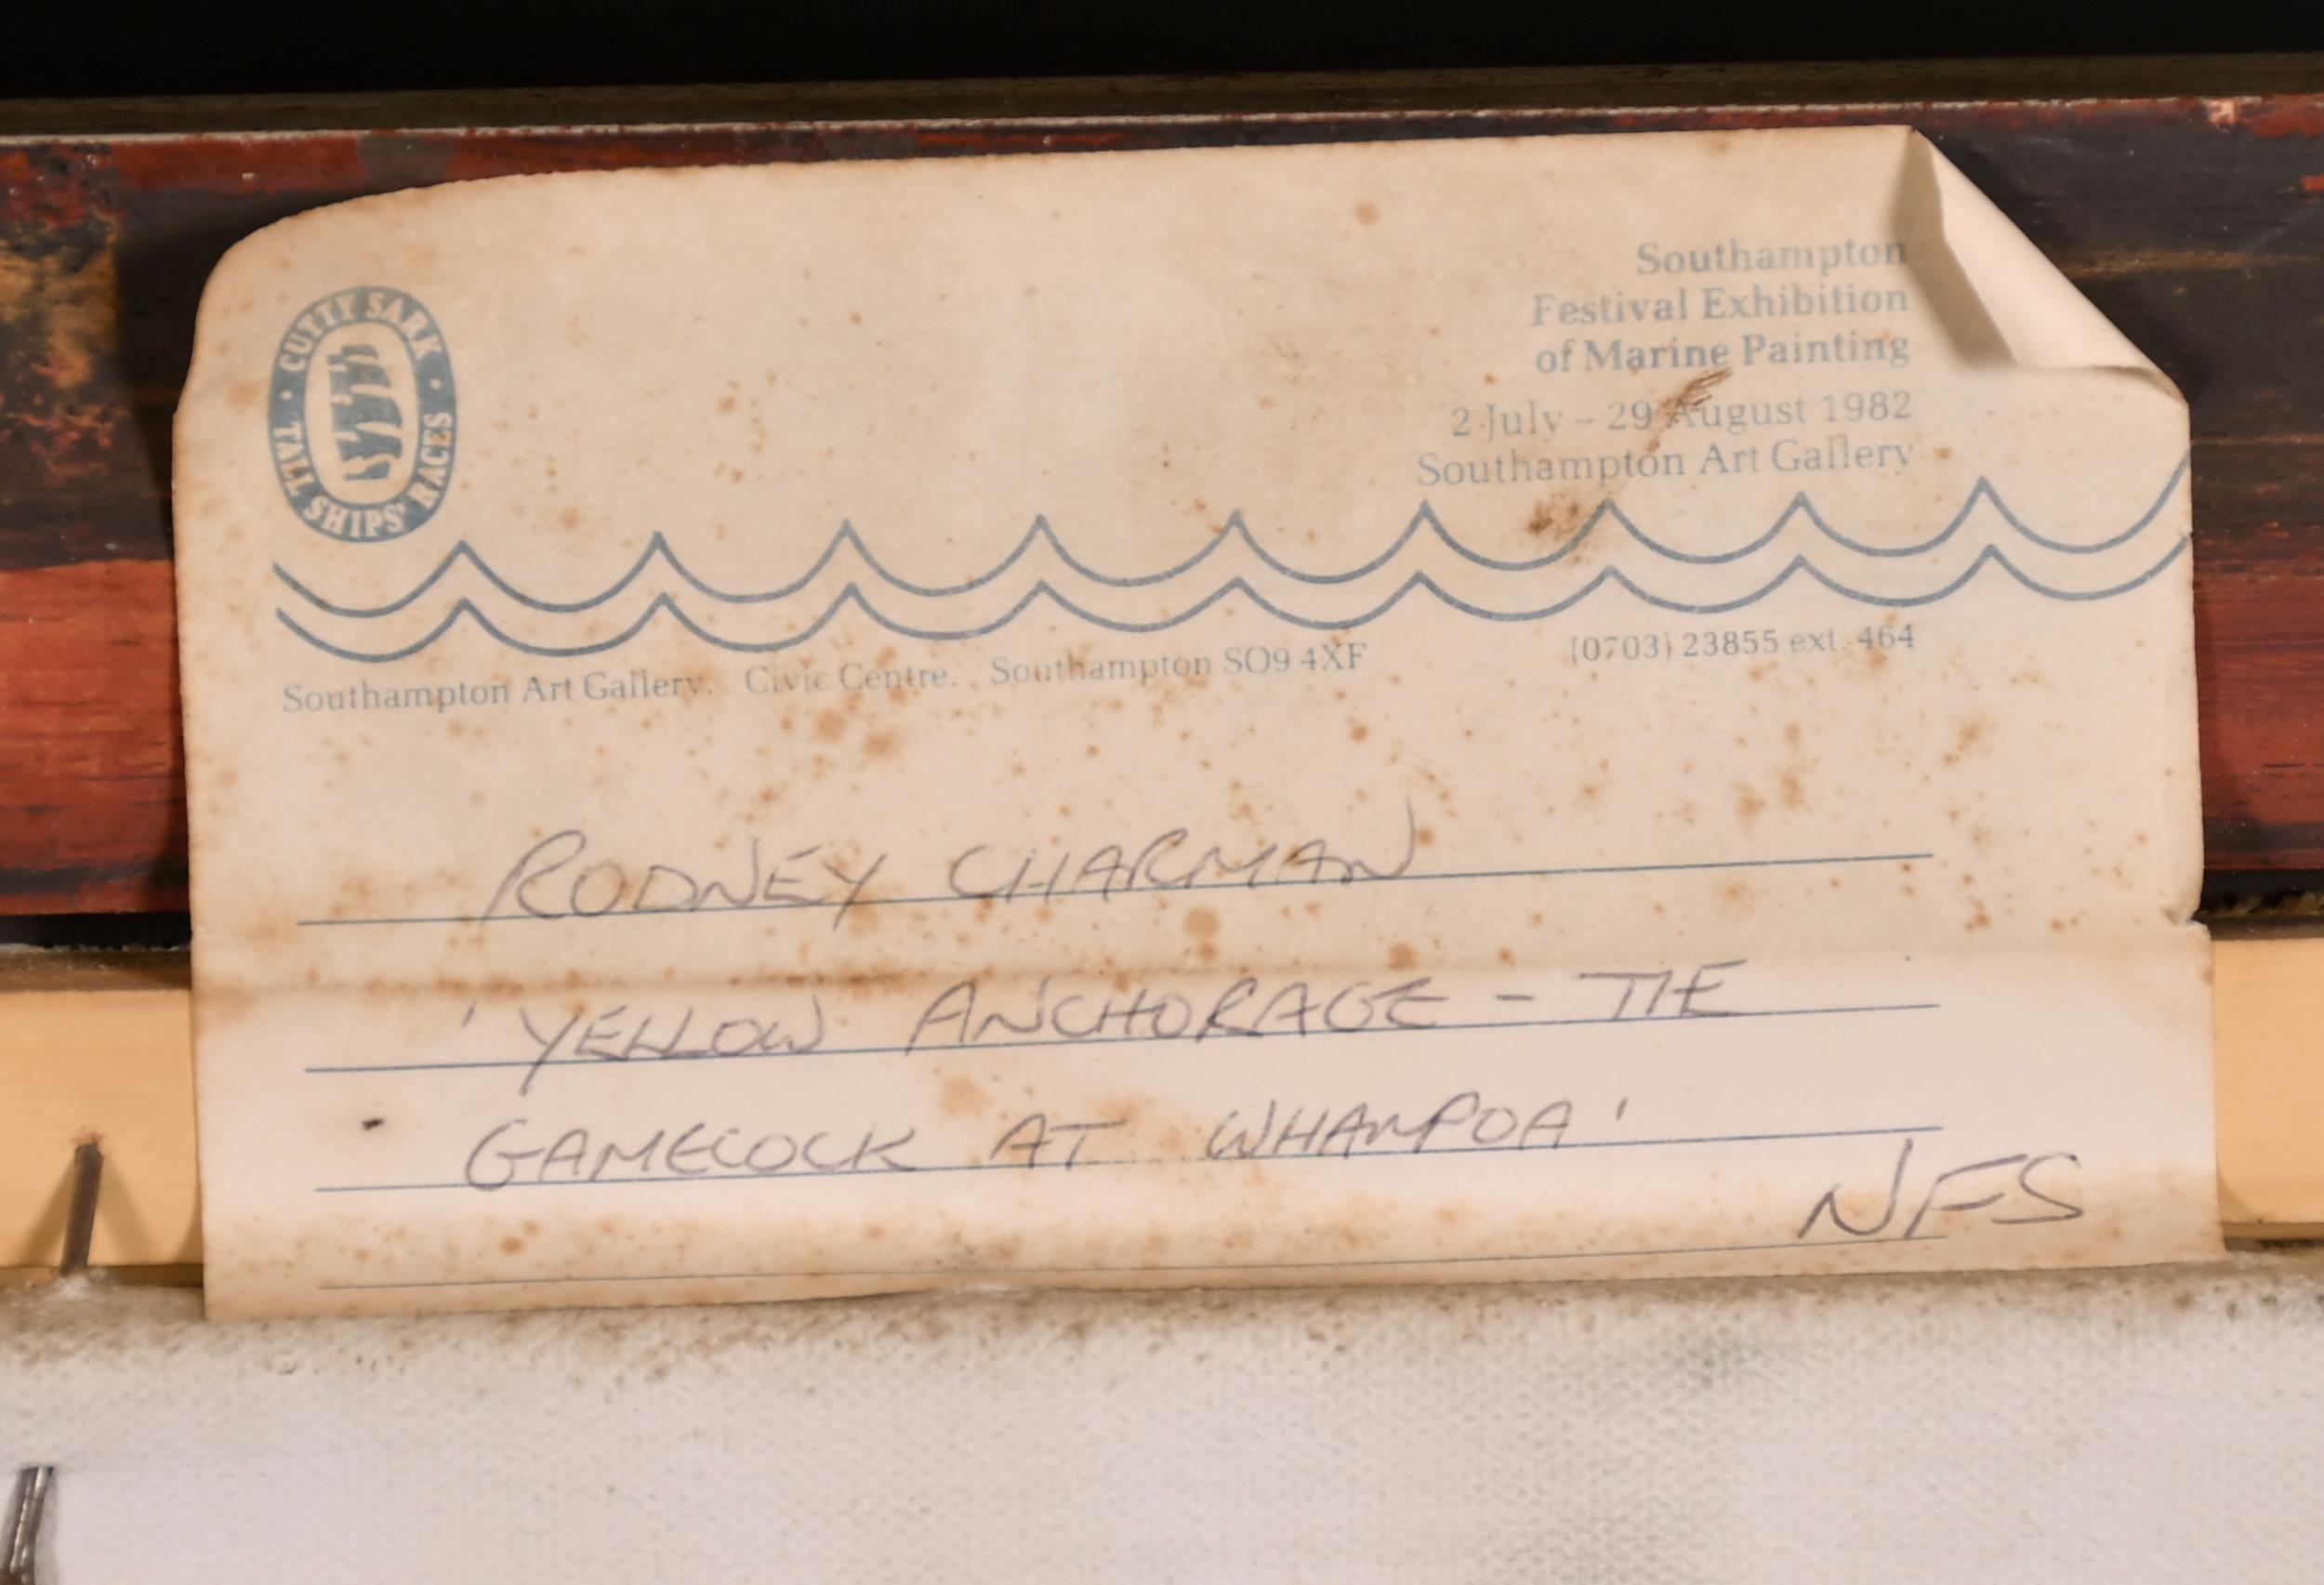 CUTTY SARK · TALL SHIPS' RACES ·
Southampton
Festival Exhibition
of Marine Painting
2 July – 29 August 1982
Southampton Art Gallery
Southampton Art Gallery. Civic Centre. Southampton SO9 4XF (0703) 23855 ext. 464
RODNEY CHARMAN
'YELLOW ANCHORAGE - THE
GAMECOCK AT WHAMPOA'
NFS